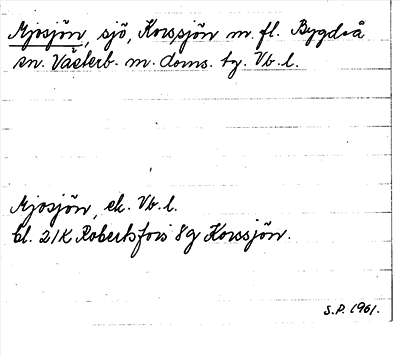 Mjosjön, sjö, Korssjön m. fl. Bygdeå
sn. Västerb. m. doms. tg. Vb. l.
Mjosjön, ek. Vb. l.
bl. 21K Robertsfors 8g Korssjön.
S.P. 1961.